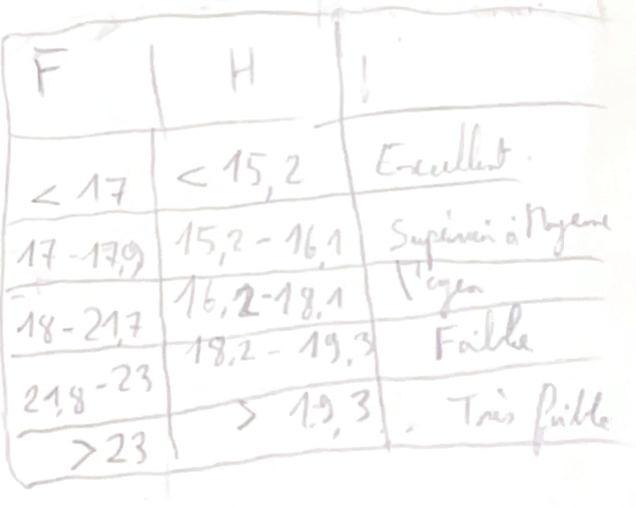 F H
< 17 < 15,2 Excellent
17-17,9 15,2-16,1 Supérieur à Moyenne
18-21,7 16,2-18,1 Moyen
21,8-23 18,2-19,3 Faible
>23 > 19,3 Très faible